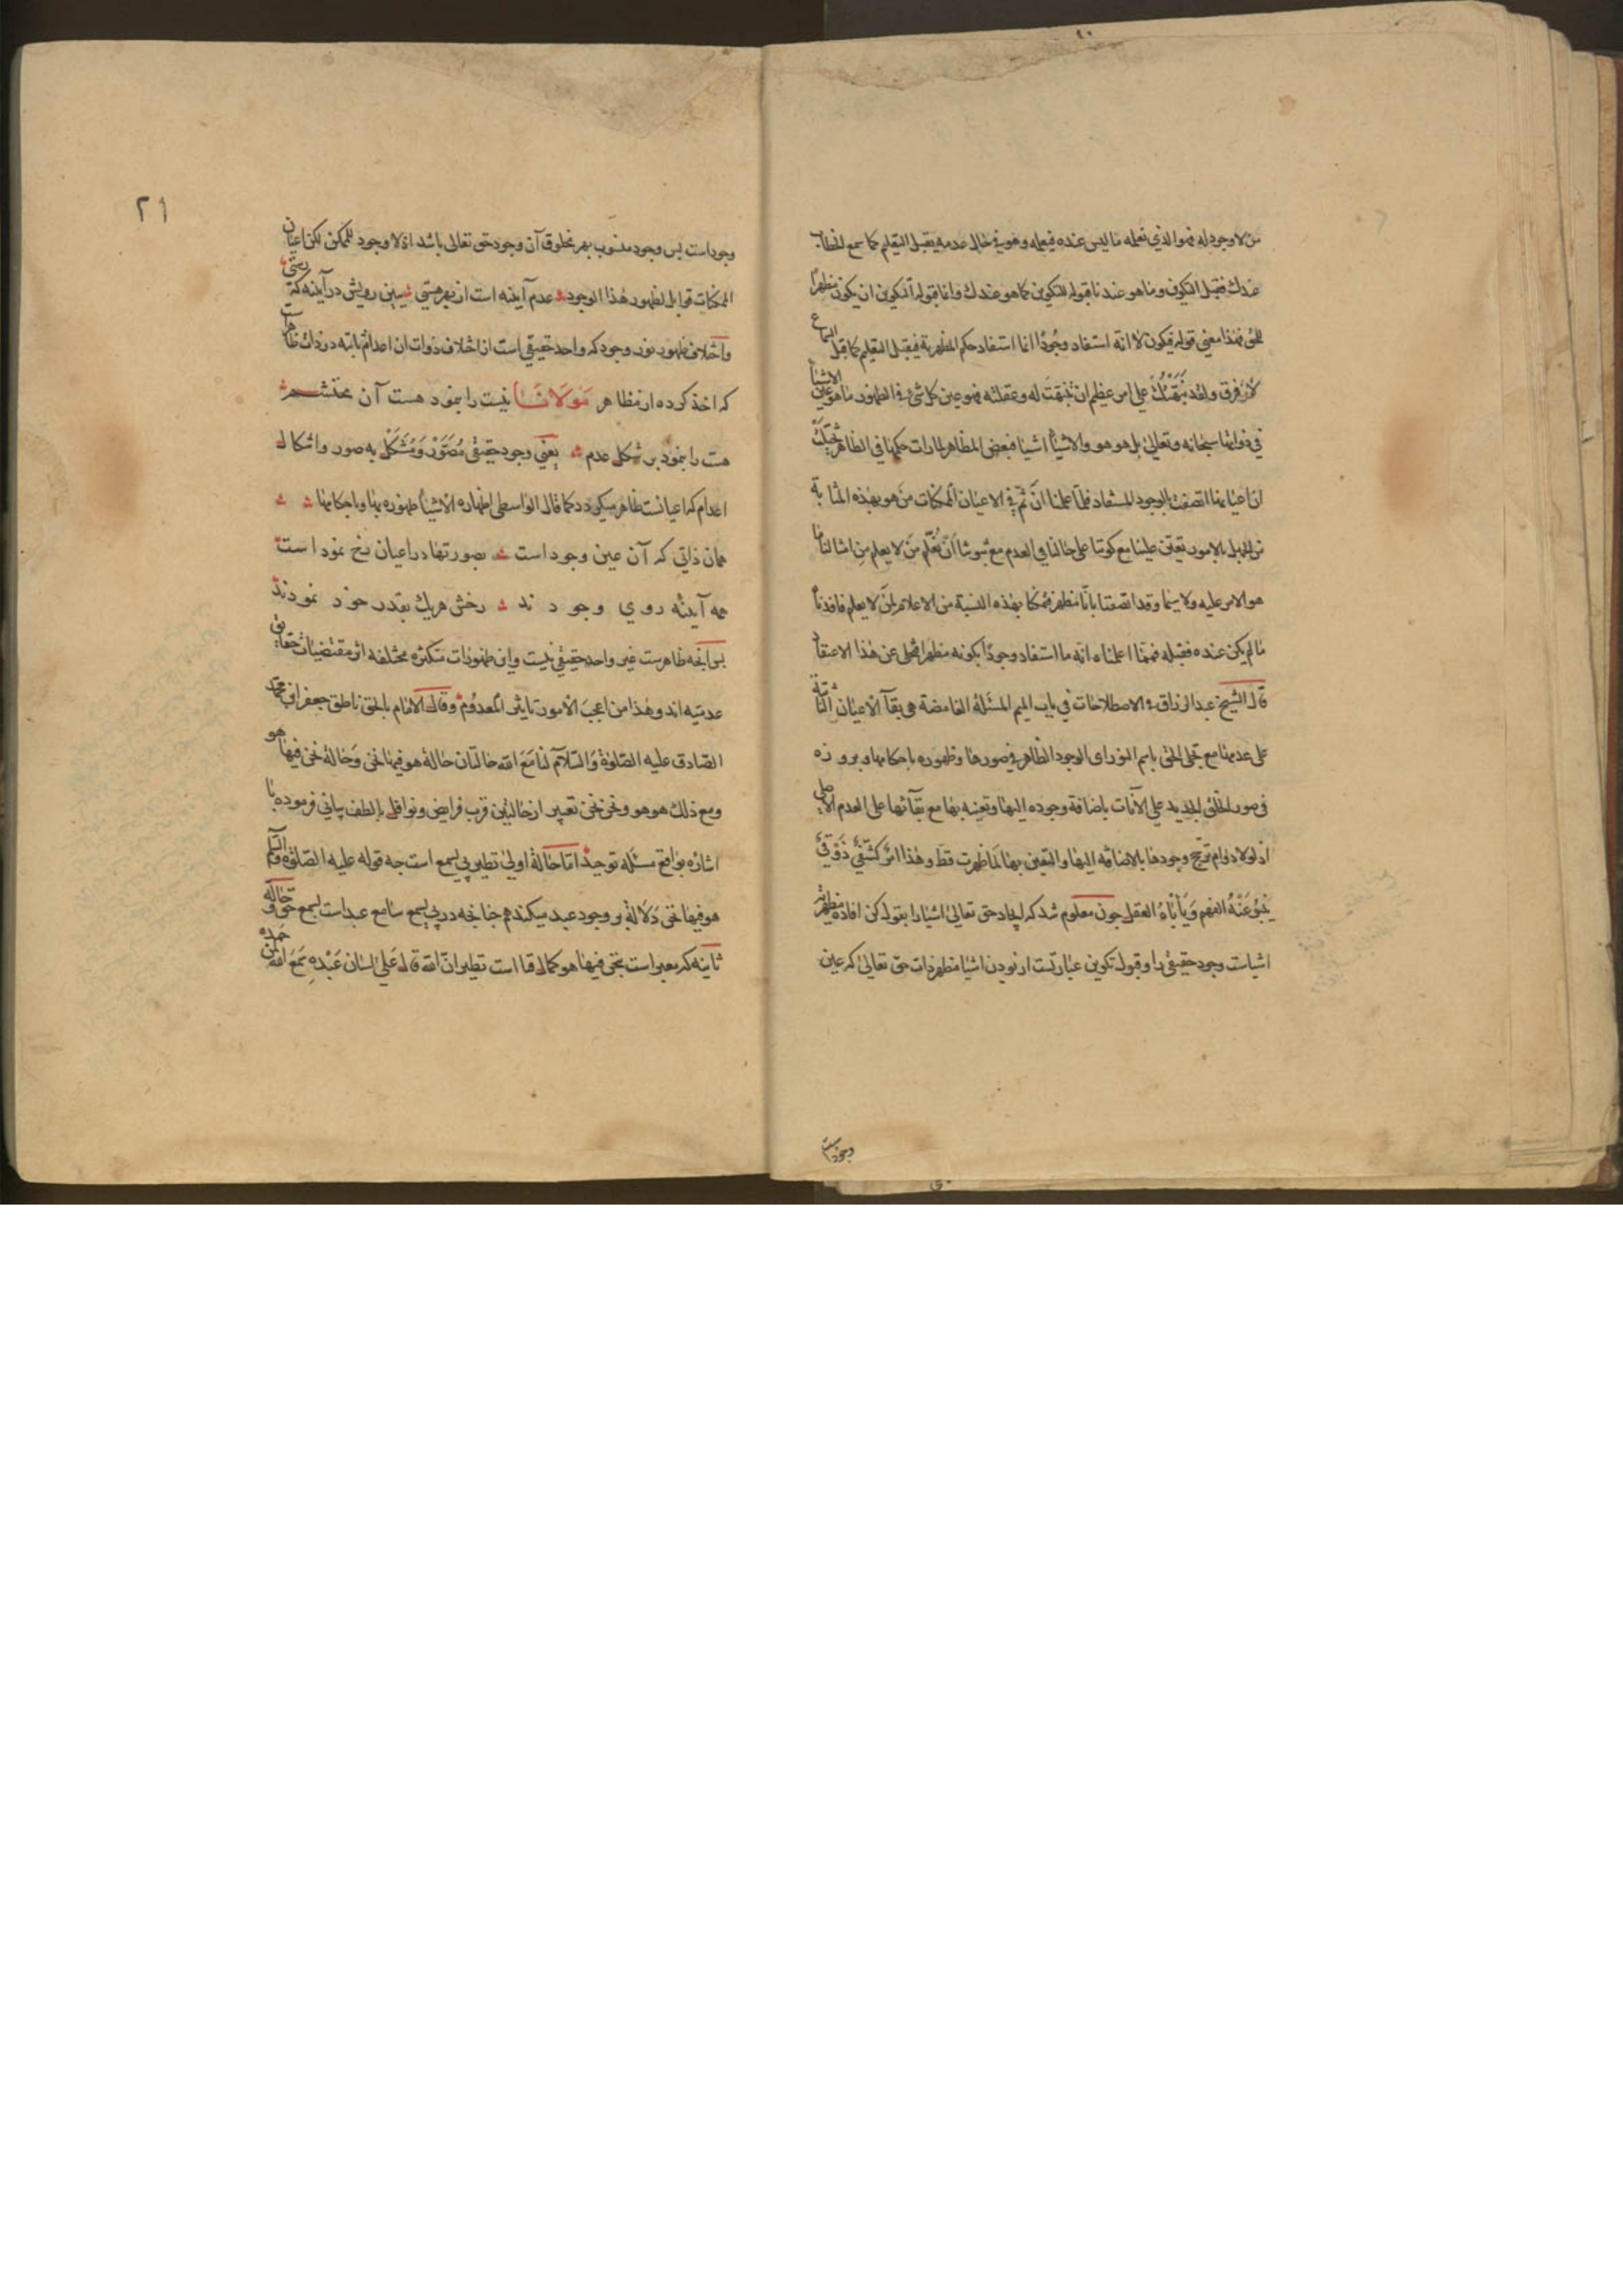 من لا وجود له فهو الذي نعلمه ما ليس عنده فيعلمه وهو في حال عدمه يقبل التعليم كما سمع الخطاب
عندك فقبل التكون وما هو عندنا قوله للتكوين كما هو عندك وانما قوله التكوين ان يكون مظهرا
للحق فهذا معنى قوله فيكون لا انه استفاد وجودًا انما استفاد حكم المظهرية فيقبل التعليم كما قبل السماع
لا فرق ولقد نبهتك على امر عظيم ان تنبهت له وعقلته فهو عين كل شئ في الظهور ما هو عين الاشيأ
في ذواتها سبحانه وتعالى بل هو هو والاشيأ اشيا فبعض المظاهر لما رات حكمها في الظاهر تخيلت
ان اعيانها اتصفت بالوجود المستفاد فلما علمنا ان ثم في الاعيان الممكنات من هو بهذه المثابة
من الجهل بالامور تعين علينا مع كوننا على حالنا في العدم مع ثبوتنا ان نعلم من لا يعلم من امثالنا ما
هو الامر عليه ولا سيما وقد اتصفنا بانا مظهر فتمكنا بهذه النسبة من الاعلام لمن لا يعلم فافدنا
ما لم يكن عنده فقبله فمما اعلمناه انه ما استفاد وجودًا بكونه مظهرا فتخلى عن هذا الاعتقا
قال الشيخ عبد الرزاق في الاصطلاحات في باب الميم المسئلة الغامضة هى بقآ الاعيان الثابتة
على عدمها مع تجلى الحق باسم النور اى الوجود الظاهر في صورها وظهوره باحكامها وبروزه
في صور الخلق الجديد على الآنات باضافة وجوده اليها وتعينه بها مع بقآئها على العدم الاصلي
اذ لولا دوام ترجح وجودها بالاضافه اليها والتعين بها لما ظهرت قط وهذا امر كشفي ذوقي
ينبو عنه الفهم ويأباه العقل چون معلوم شد كه ايجاد حق تعالى اشيا را بقول كن افاده مظهريت
اشياست وجود حقيقي را وقبول تكوين عبارتست از بودن اشيا مظهر ذات حق تعالى كه عين
وجود است
٢١
وجود است پس وجود منسوب بهر مخلوق آن وجود حق تعالى باشد اذ لا وجود للممكن لكن اعيان
الممكنات قوابل لظهور هذا الوجود عدم آينه است از بهر هستي ببين رويش در آينه كه رستي
واختلاف ظهور نور وجود كه واحد حقيقي است از اختلاف ذوات ان اعدام ثابته در ذات ظاهر است
كه اخذ كرده از مظاهر مولانا نيست را بنمود هست آن محتشم
هست را بنمود بر شكل عدم يعني وجود حقيقي مصور ومشكل به صور واشكال
اعدام كه اعيانست ظاهر ميكردد كما قال الواسطى اظهاره الاشيأ ظهوره بها وباحكامها
همان ذاتي كه آن عين وجود است بصورتها در اعيان رخ نمود است
همه آينه روي وجودند رخش هريك بقدر خود نمودند
پس آنچه ظاهرست غير واحد حقيقي نيست واين ظهورات متكثره مختلفه اثر مقتضيات حقايق
عدميه اند وهذا من اعجب الامور تاثير المعدوم وقال الامام بالحق ناطق جعفر ابن محمد
الصادق عليه الصلوة والسلام لنا مع الله حالتان حالة هو فيها نحن وحالة نحن فيها هو
ومع ذلك هو هو ونحن نحن تعبير از حالتين قرب فرايض ونوافل بالطف بياني فرموده با
اشاره بواقع مسئله توحيد اما حالة اولى نظير بي يسمع است چه قوله عليه الصلوة والسلام
هو فيها نحن دلالة بر وجود عبد ميكند هم چنانچه در بي يسمع سامع عبد است بسمع حق وحالة
ثانيه كه معبر است بنحن فيها هو كما قال است نظير ان الله قال على لسان عبده سمع الله لمن حمده